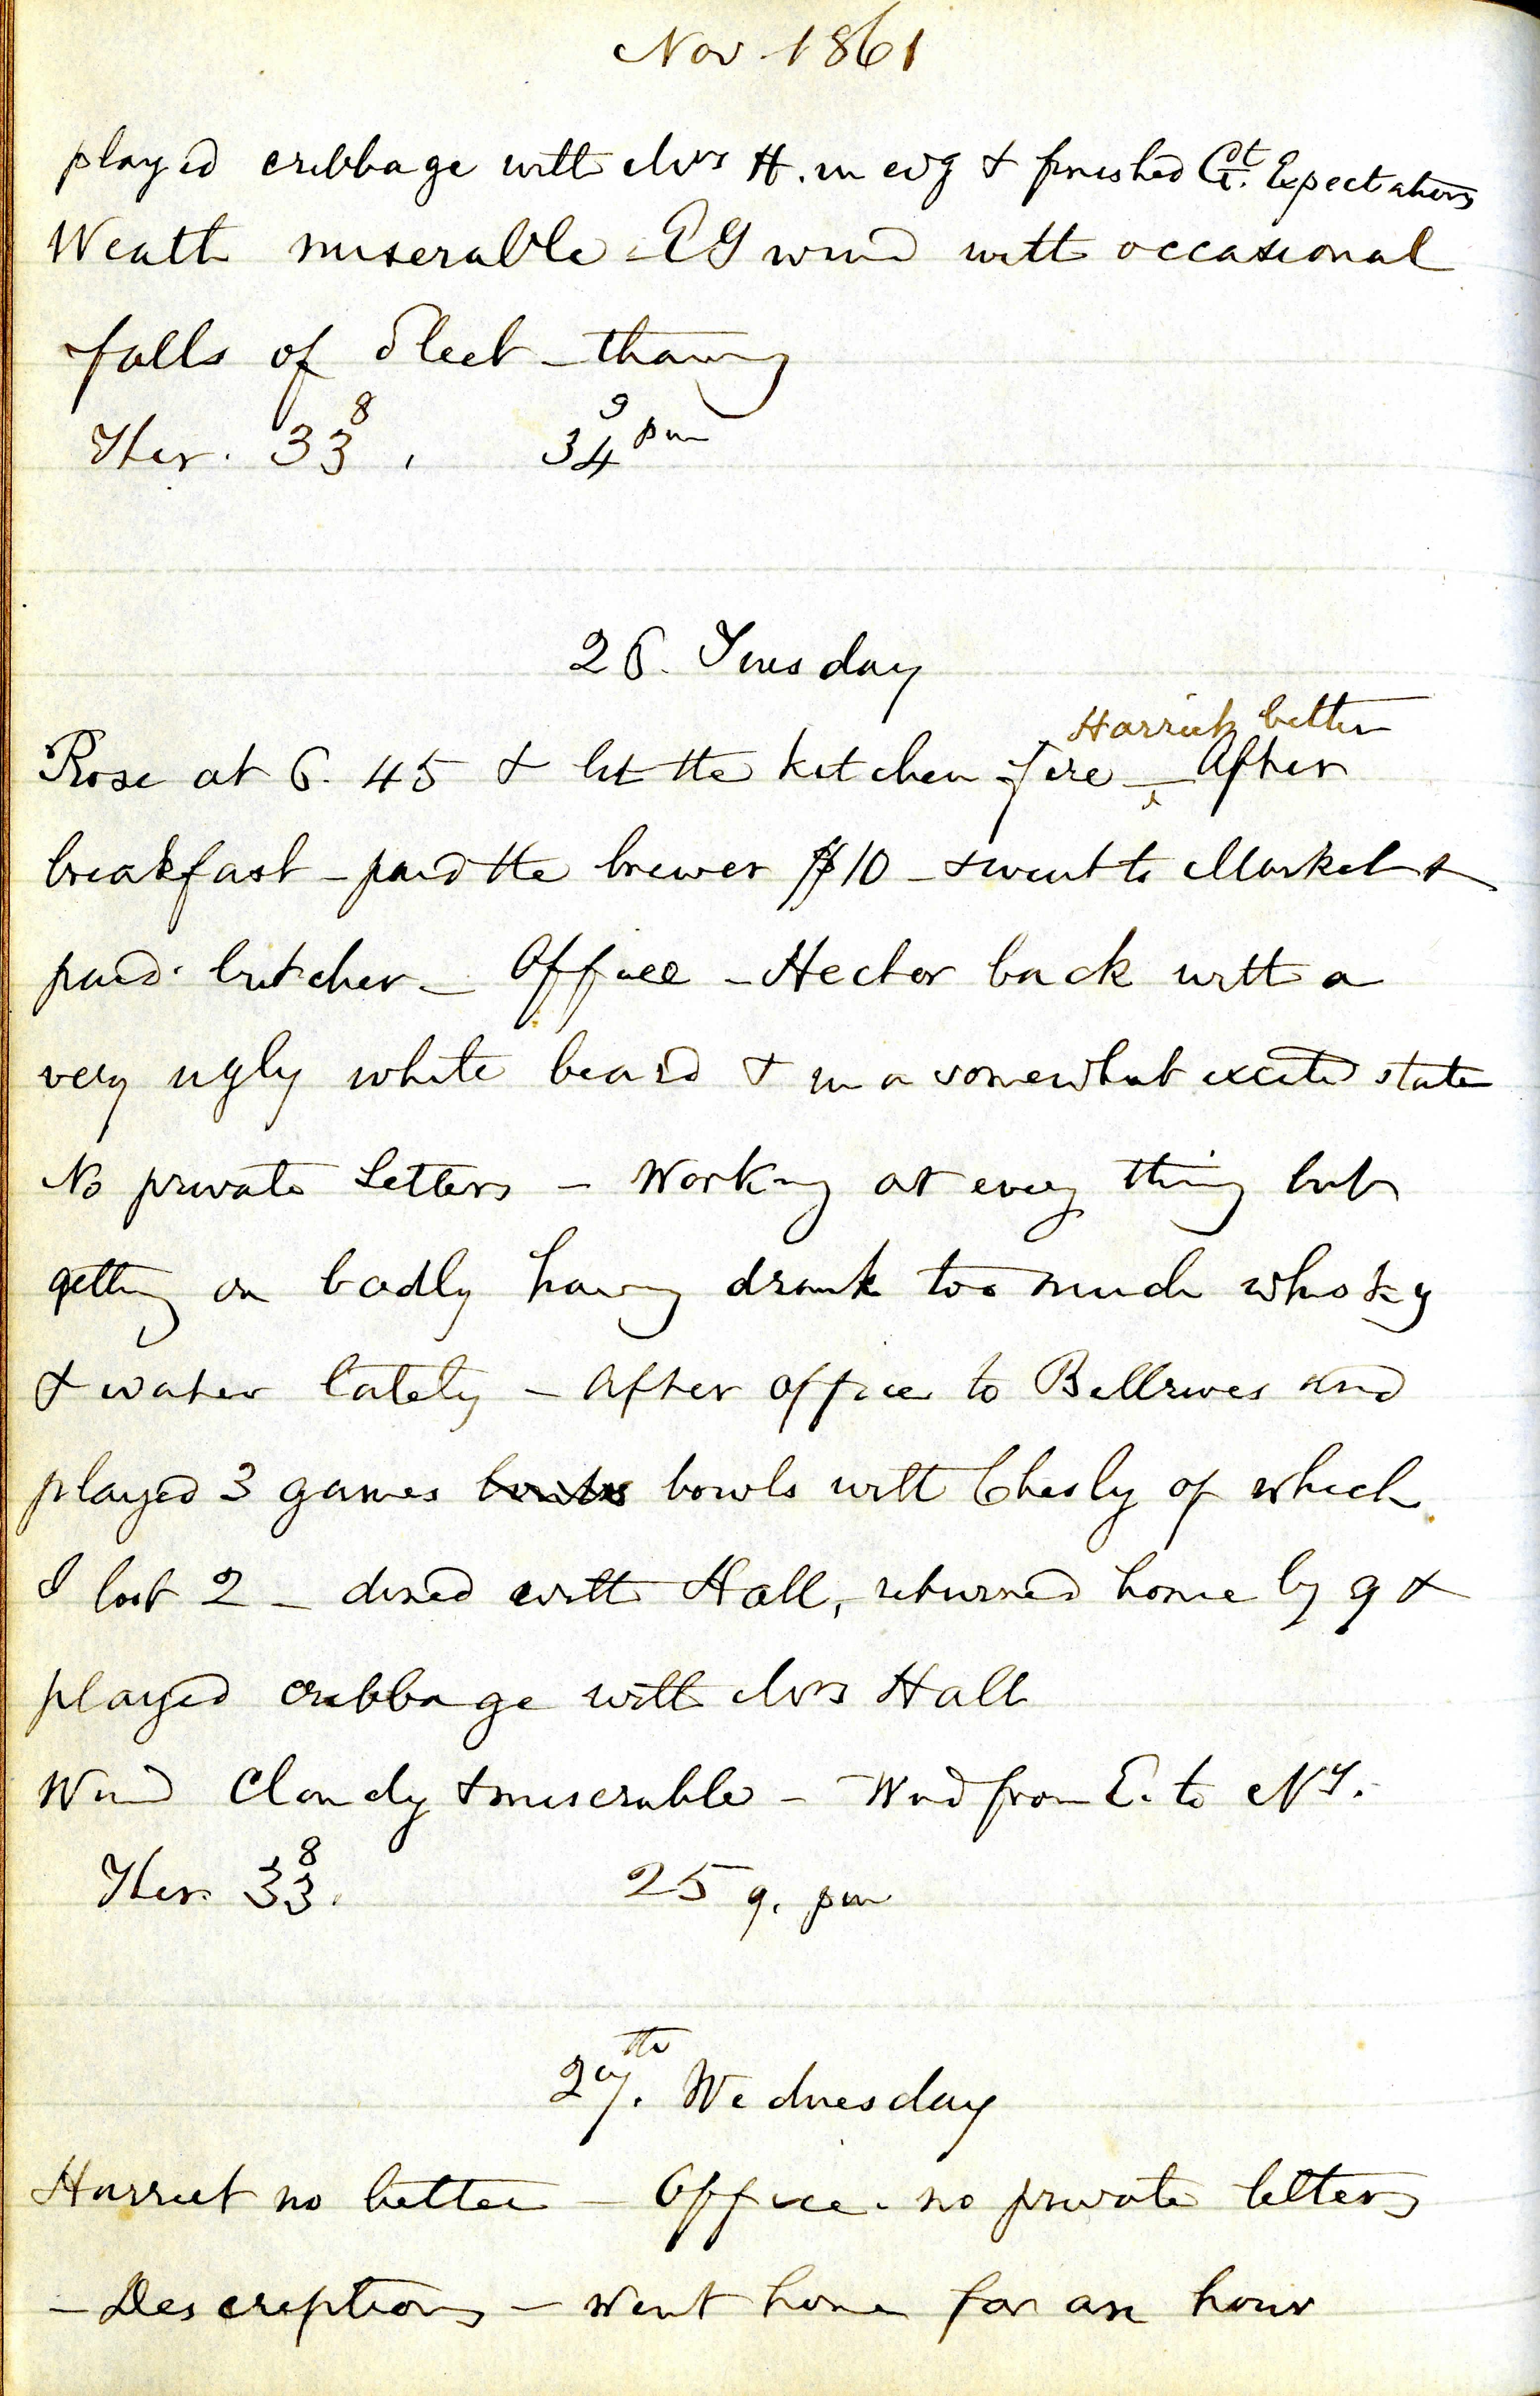 Nov 1861
played cribbage with Mrs H. in evg & finished Gt. Expectations
Weath miserable - Ely wind with occasional
falls of Sleet - thawing
Ther. 33 8. 34 9 pm
26. Tuesday
Harriet better
Rose at 6.45 & lit the kitchen fire - After
breakfast - paid the brewer $10 - & went to Market &
paid butcher - Office - Hector back with a
very ugly white beard & in a somewhat excited state
No private Letters - Working at every thing but
getting on badly having drank too much whisky
& water lately - After office to Bellrives and
played 3 games bowls with Chesly of which
I lost 2 - dined with Hall, returned home by 9 &
played cribbage with Mrs Hall
Wind Cloudy & miserable - Wind from E. to
Ther. 33 8. 25 9. pm
27th. Wednesday
Harriet no better - Office - no private letters
- Descriptions - went home for an hour